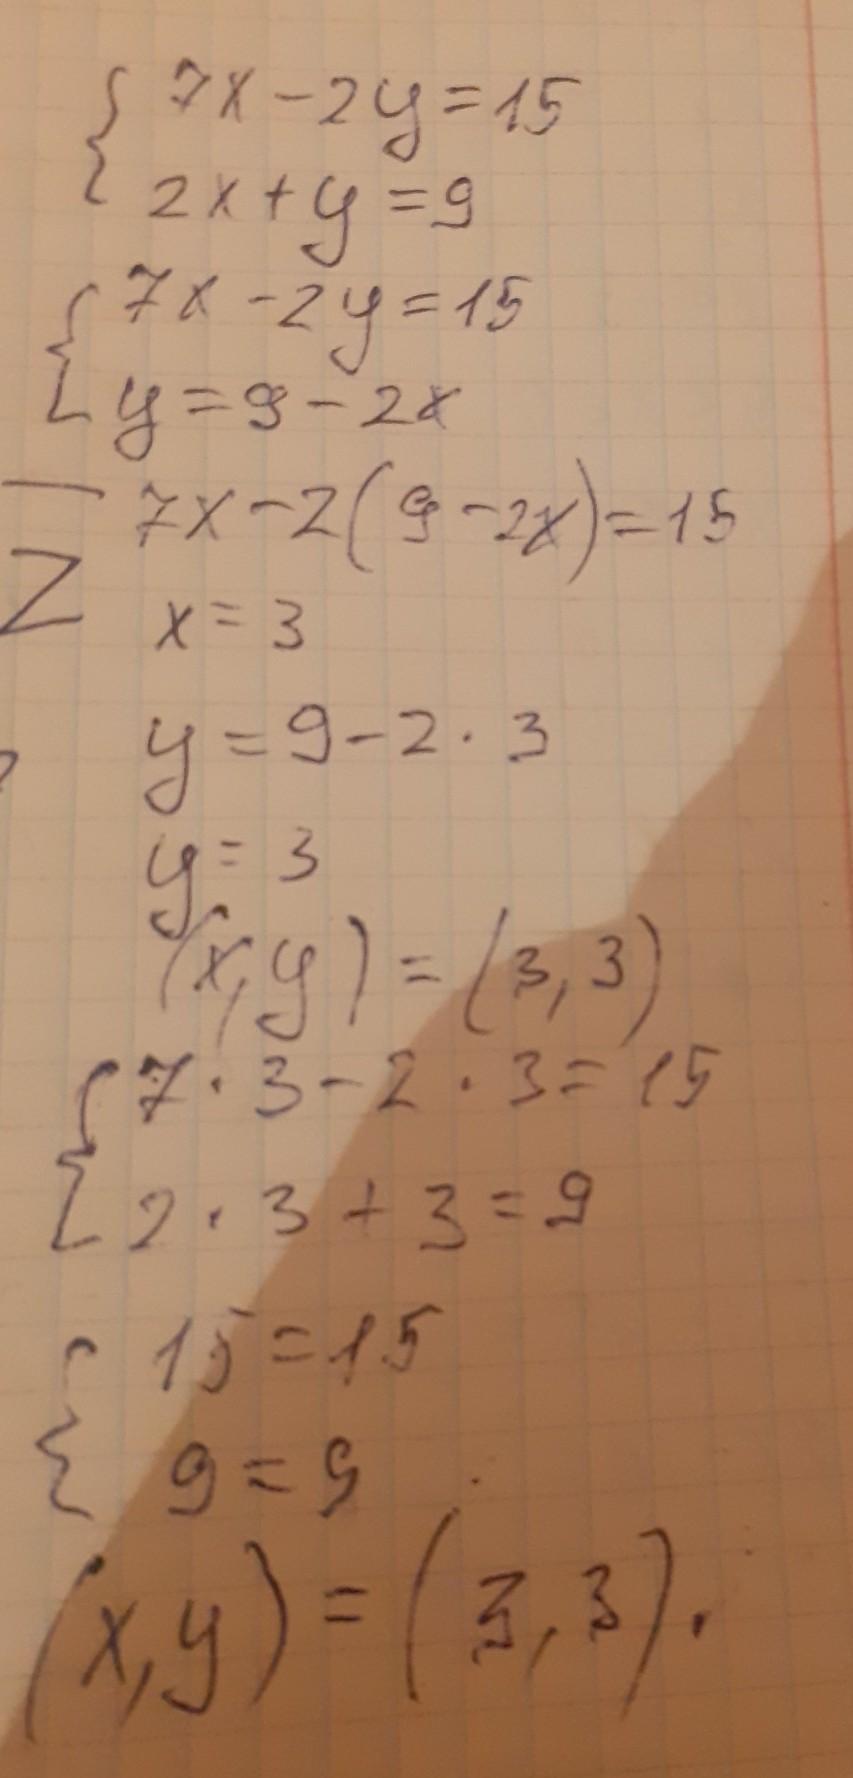 7x - 2y = 15
2x + y = 9
7x - 2y = 15
y = 9 - 2x
7x - 2(9 - 2x) = 15
x = 3
y = 9 - 2 · 3
y = 3
(x, y) = (3, 3)
7 · 3 - 2 · 3 = 15
2 · 3 + 3 = 9
15 = 15
9 = 9
(x, y) = (3, 3).